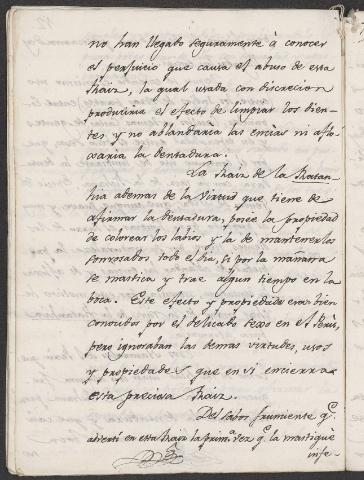 no han llegado seguramente à conocer
el perjuicio que causa el abuso de esta
Rhaiz, la qual usada con discrecion
produciria el efecto de limpiar los dien-
tes y no ablandaria las encias ni aflo-
xaria la dentadura.
La Rhaiz de la Ratan-
hia ademas de la virtud que tiene de
afirmar la dentadura, posee la propiedad
de colorear los labios y la de mantenerlos
sonrosados todo el dia, si por la mañana
se mastica y trae algun tiempo en la
boca. Este efecto y propiedad eran bien
conocidos por el delicado sexo en el Perú,
pero ignoraban las demas virtudes, usos
y propiedades que en si encierra
esta preciosa Rhaiz.
Del sabor q.e
advertí en esta Rhaiz la prim.a vez q.e la mastiqué
infe-